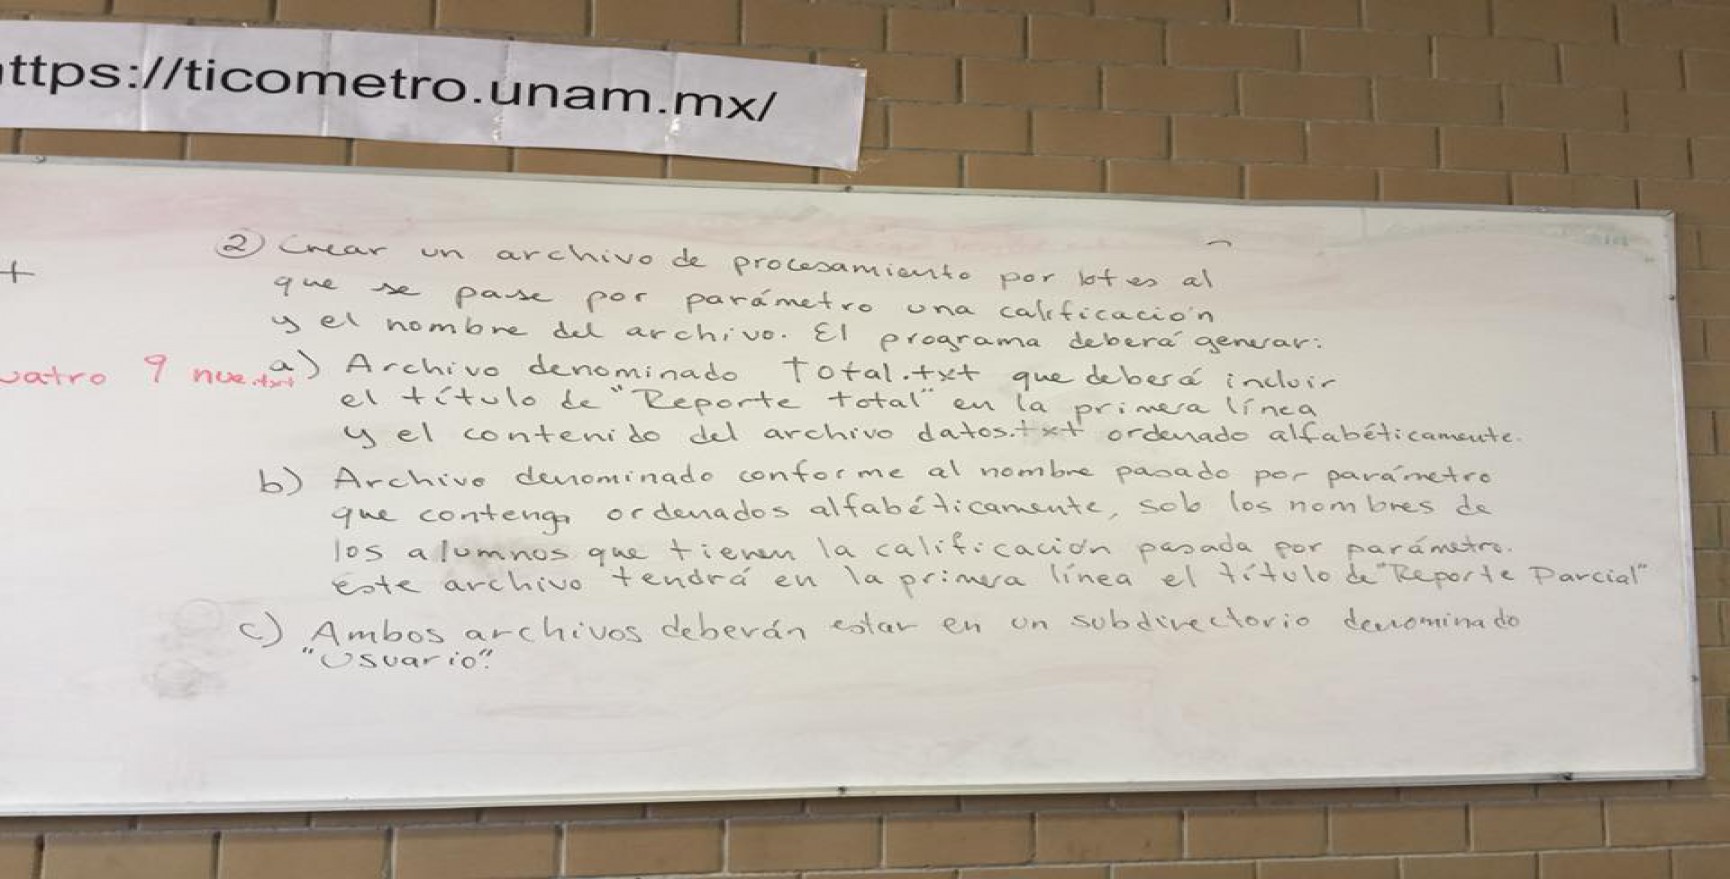 ttps://ticometro.unam.mx/
② Crear un archivo de procesamiento por lotes al
que se pase por parámetro una calificación
y el nombre del archivo. El programa deberá generar:
uatro 9 nue.txt
a) Archivo denominado Total.txt que deberá incluir
el título de "Reporte total" en la primera línea
y el contenido del archivo datos.txt ordenado alfabéticamente.
b) Archivo denominado conforme al nombre pasado por parámetro
que contenga ordenados alfabéticamente, solo los nombres de
los alumnos que tienen la calificación pasada por parámetro.
este archivo tendrá en la primera línea el título de "Reporte Parcial"
c) Ambos archivos deberán estar en un subdirectorio denominado
"Usuario".